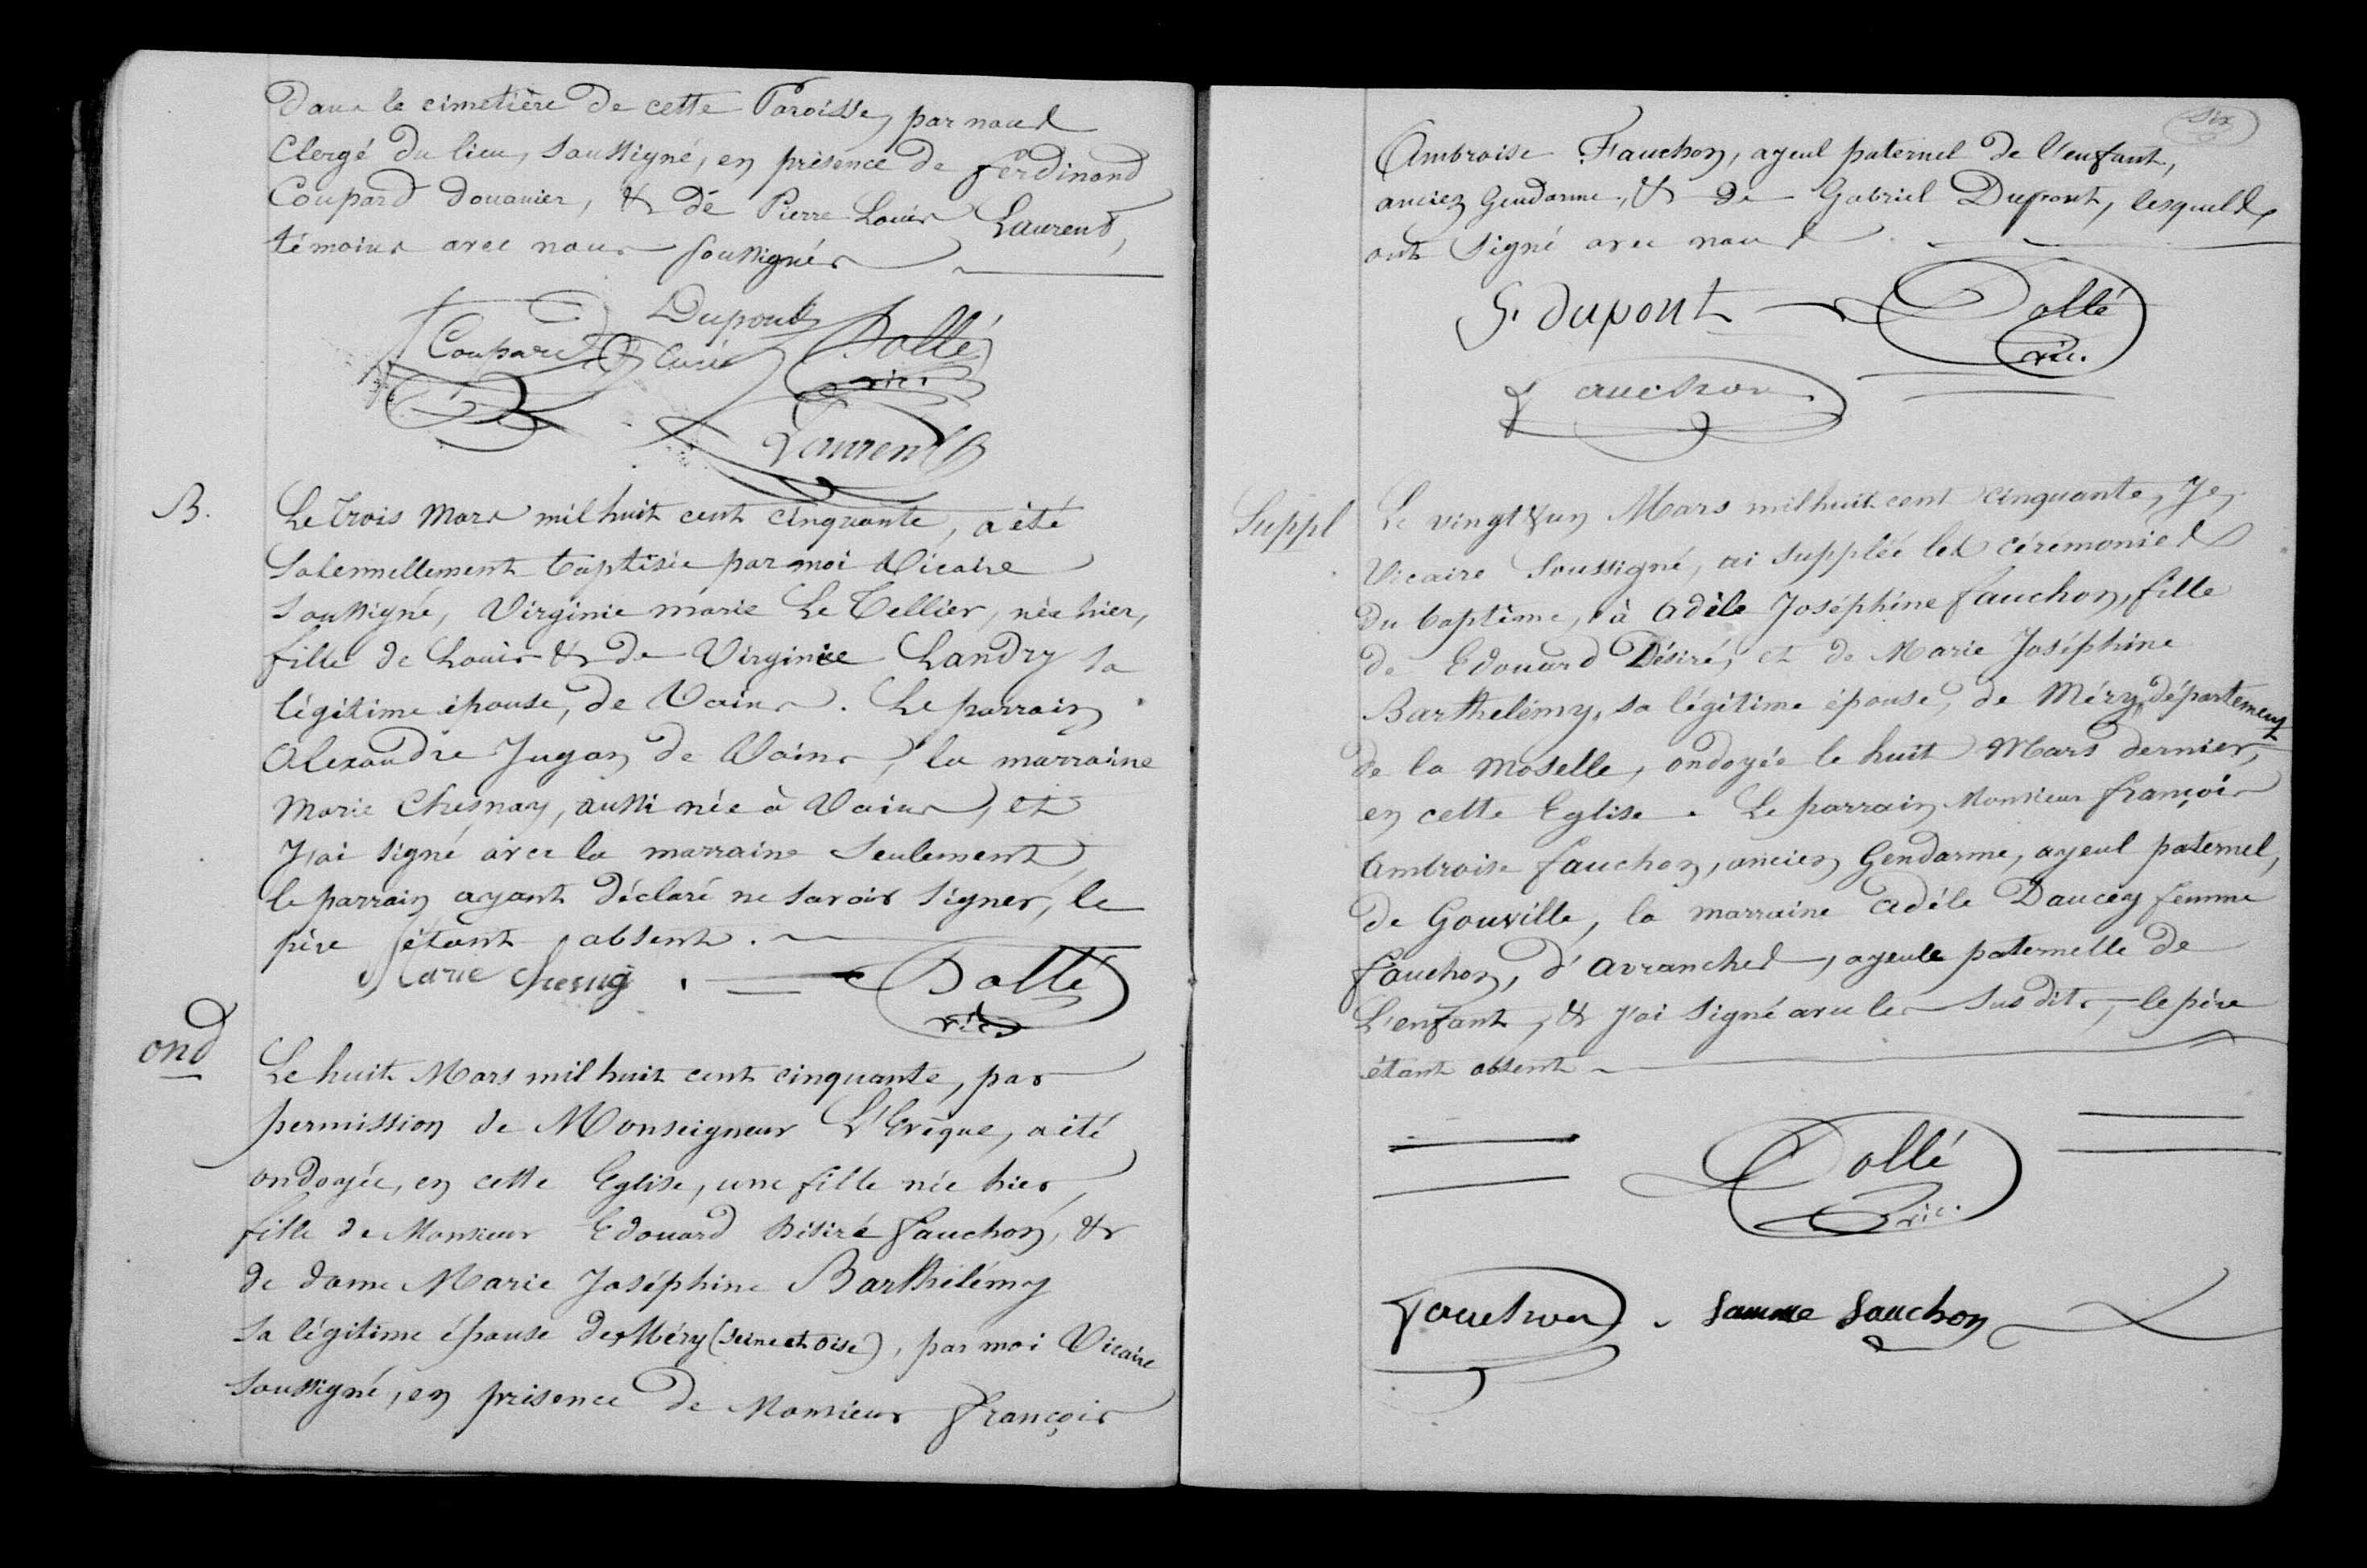 dans le cimetière de cette Paroisse, par nous
Clergé du lieu, soussigné, en présence de ferdinand
Coupard douanier, & de Pierre Louis Laurent,
témoins avec nous soussignés
Dupont
Coupard curé Dollé
vic.
Laurent
B.
Le trois Mars mil huit cent cinquante, a été
Solennellement baptisée par moi Vicaire
soussigné, Virginie marie Le Tellier, née hier,
fille de Louis & de Virginie Landry sa
légitime épouse, de Vains. Le parrain
Alexandre Jugan de Vains, la marraine
Marie Chesnay, aussi née à Vains, et
J'ai signé avec la marraine seulement,
le parrain ayant déclaré ne savoir signer, le
père étant absent.
Marie Dollé
vic
ond
Le huit Mars mil huit cent cinquante, par
permission de Monseigneur L'Evêque, a été
ondoyée, en cette Eglise, une fille née hier,
fille de Monsieur Edouard Désiré Fauchon, &
de dame Marie Joséphine Barthélémy
sa légitime épouse de Méry (Seine et Oise), par moi Vicaire
soussigné, en présence de Monsieur François
Six
Ambroise Fauchon, ayeul paternel de l'enfant,
ancien Gendarme, & de Gabriel Dupont, lesquels
ont signé avec nous
G. dupont Dollé
vic.
Fauchon
Suppl
Le vingt & un Mars mil huit cent cinquante, Je,
Vicaire Soussigné, ai supplée les cérémonies
du baptême, à Adèle Joséphine fauchon, fille
de Edouard Désiré, et de Marie Joséphine
Barthelémy, sa légitime épouse, de Méry, département
de la Moselle, ondoyée le huit Mars dernier,
en cette Eglise. Le parrain Monsieur françois
Ambroise fauchon, ancien Gendarme, ayeul paternel,
de Gouville, la marraine Adèle Daucey femme
fauchon, d'Avranches, ayeule paternelle de
L'enfant, & j'ai signé avec les Susdits, le père
étant absent
Dollé
vic.
Fauchon famme fauchon